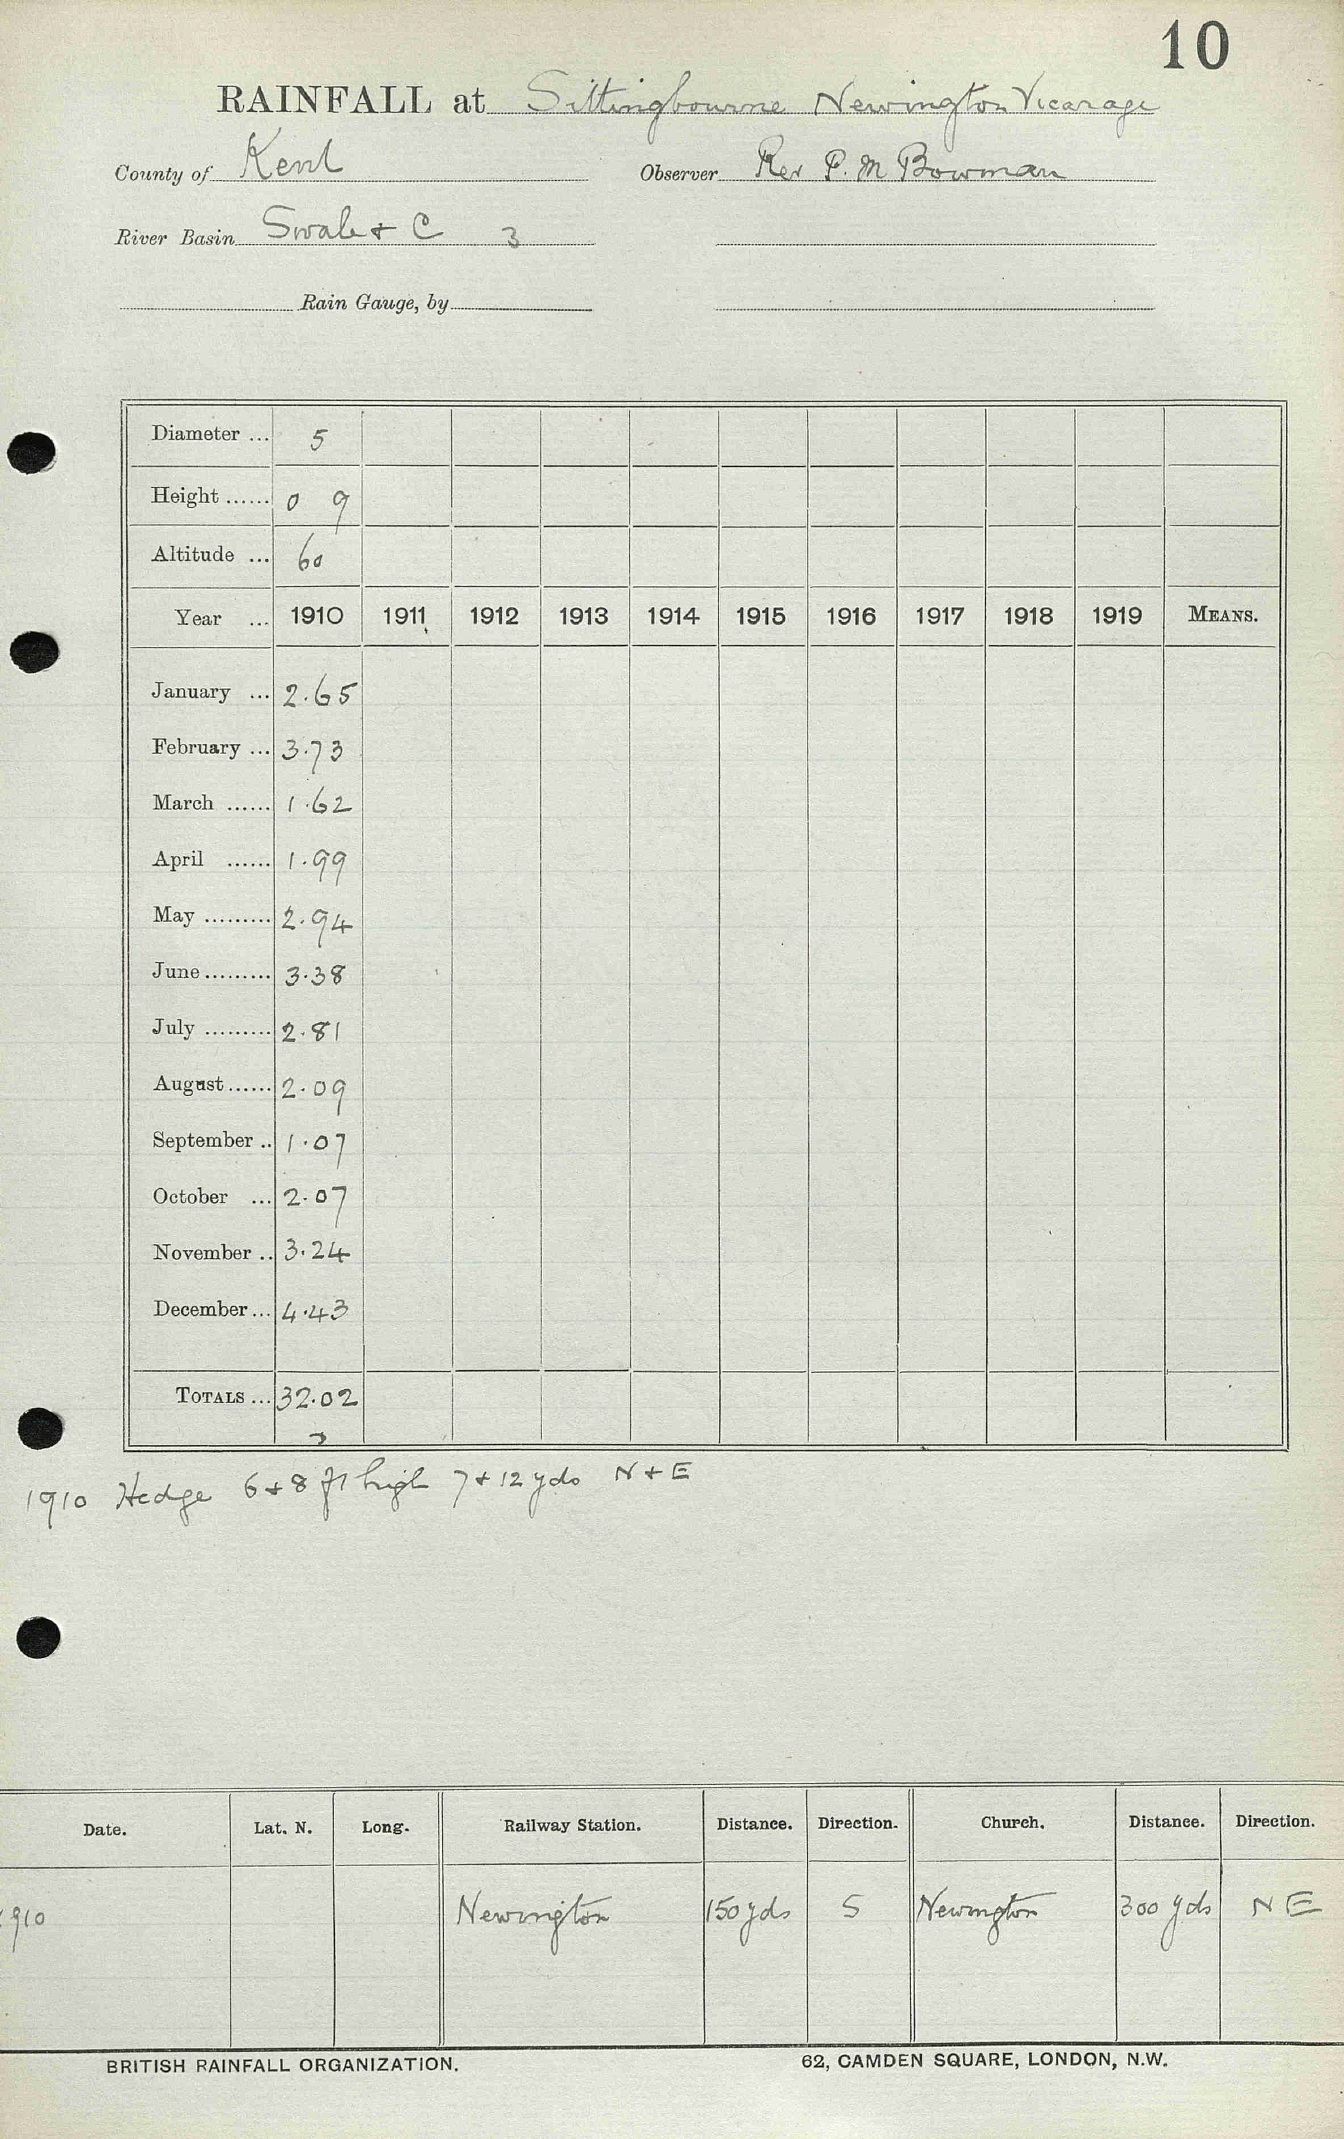 10
RAINFALL at Sittingbourne Newington Vicarage
County of Kent Observer Rev P. M Bowman
River Basin Swale & C 3
Rain Gauge, by
Diameter ... 5
Height ...... 0 9
Altitude ... 60
Year ... 1910 1911 1912 1913 1914 1915 1916 1917 1918 1919 MEANS.
January ... 2.65
February ... 3.73
March ...... 1.62
April ...... 1.99
May ......... 2.94
June ......... 3.38
July ......... 2.81
August ...... 2.09
September .. 1.07
October ... 2.07
November .. 3.24
December ... 4.43
TOTALS ... 32.02
1910 Hedge 6 & 8 ft high 7 & 12 yds N & E
Date. Lat. N. Long. Railway Station. Distance. Direction. Church. Distance. Direction.
1910 Newington 150 yds S Newington 300 yds NE
BRITISH RAINFALL ORGANIZATION. 62, CAMDEN SQUARE, LONDON, N.W.